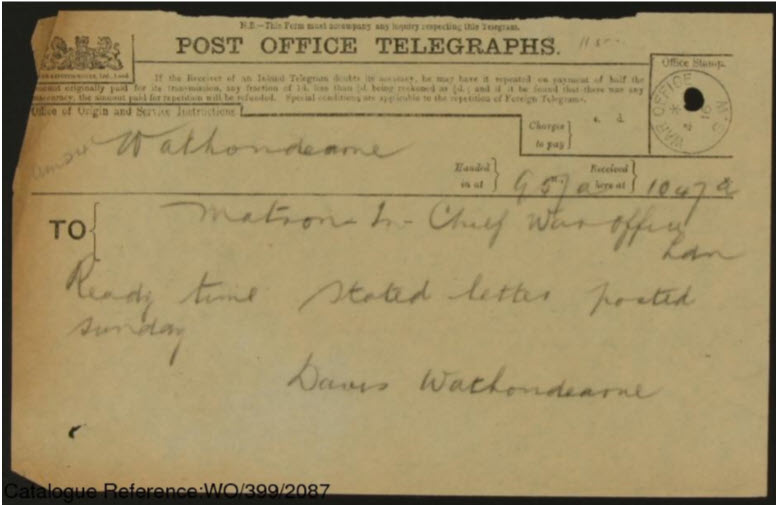 N.B.—This Form must accompany any inquiry respecting this Telegram.
POST OFFICE TELEGRAPHS.
Office Stamp.
WAR OFFICE
If the Receiver of an Inland Telegram doubts its accuracy, he may have it repeated on payment of half the
amount originally paid for its transmission, any fraction of 1d. less than ½d. being reckoned as ½d.; and if it be found that there was any
inaccuracy, the amount paid for repetition will be refunded. Special conditions are applicable to the repetition of Foreign Telegrams.
Office of Origin and Service Instructions.
Charges to pay
s. d.
Wathondearne
Handed in at
9 57 a
Received here at
1047 a
TO
Matron-In-Chief War office
Ldn
Ready time stated letter posted
sunday
Davis Wathondearne
Catalogue Reference:WO/399/2087